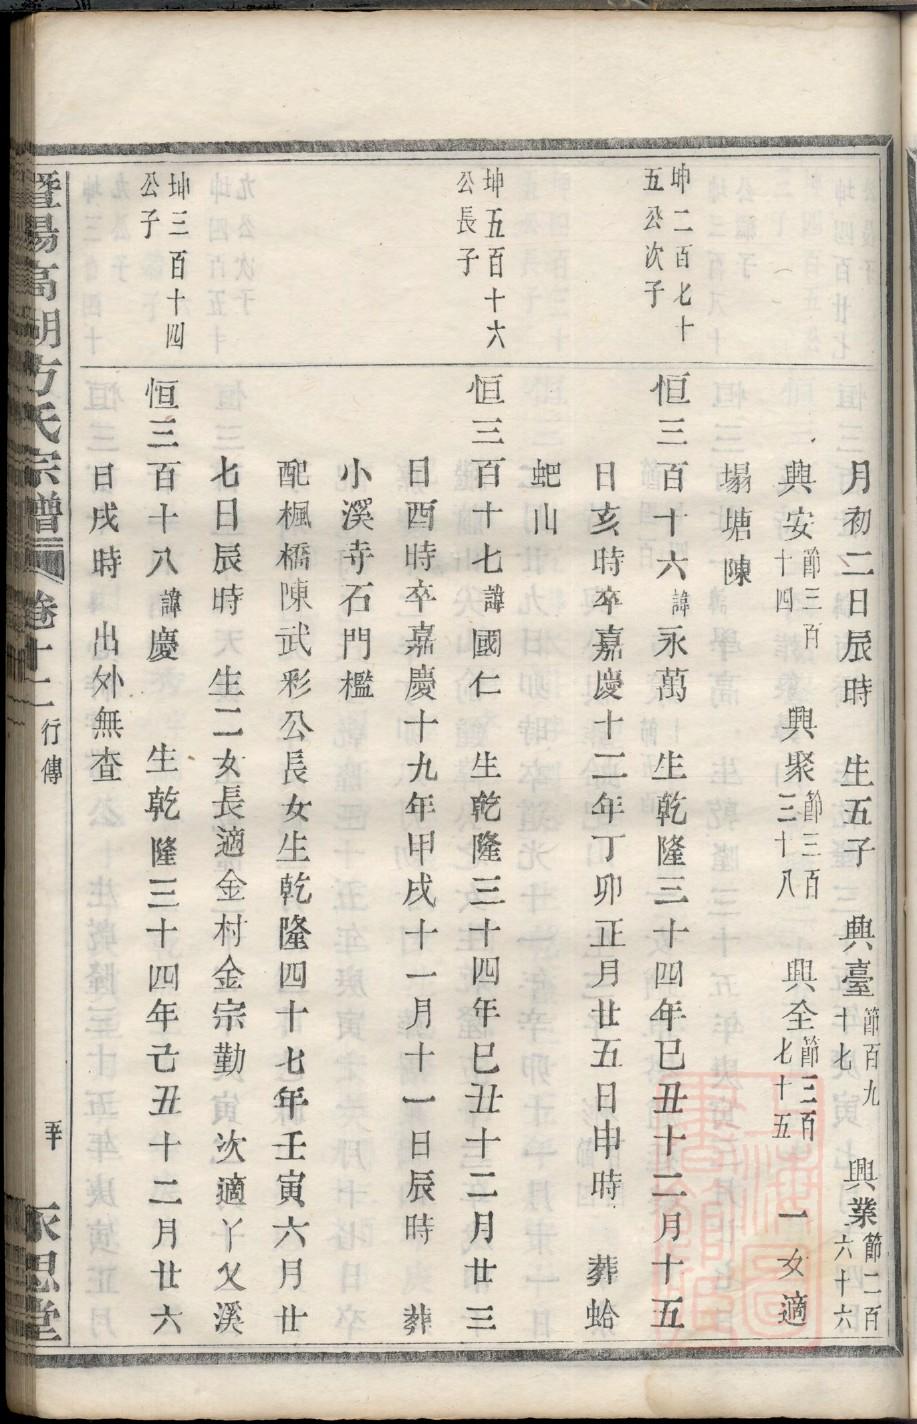 月初二日辰時　生五子　興臺節百九十七　興業節二百六十六
興安節三百十四　興聚節三百三十八　興全節三百七十五　一女適
塌塘陳
坤二百七十五公次子
恒三百十六諱永萬　生乾隆三十四年巳丑十二月十五
日亥時卒嘉慶十二年丁卯正月廿五日申時　葬蛤
蚆山
坤五百十六公長子
恒三百十七諱國仁　生乾隆三十四年巳丑十二月廿三
日酉時卒嘉慶十九年甲戌十一月十一日辰時　葬
小溪寺石門檻
配楓橋陳武彩公長女生乾隆四十七年壬寅六月廿
七日辰時　生二女長適金村金宗勤　次適丫乂溪
坤三百十四公子
恒三百十八諱慶　生乾隆三十四年己丑十二月廿六
日戌時　出外無查
暨陽高湖方氏宗譜　卷十二　行傳　永思堂